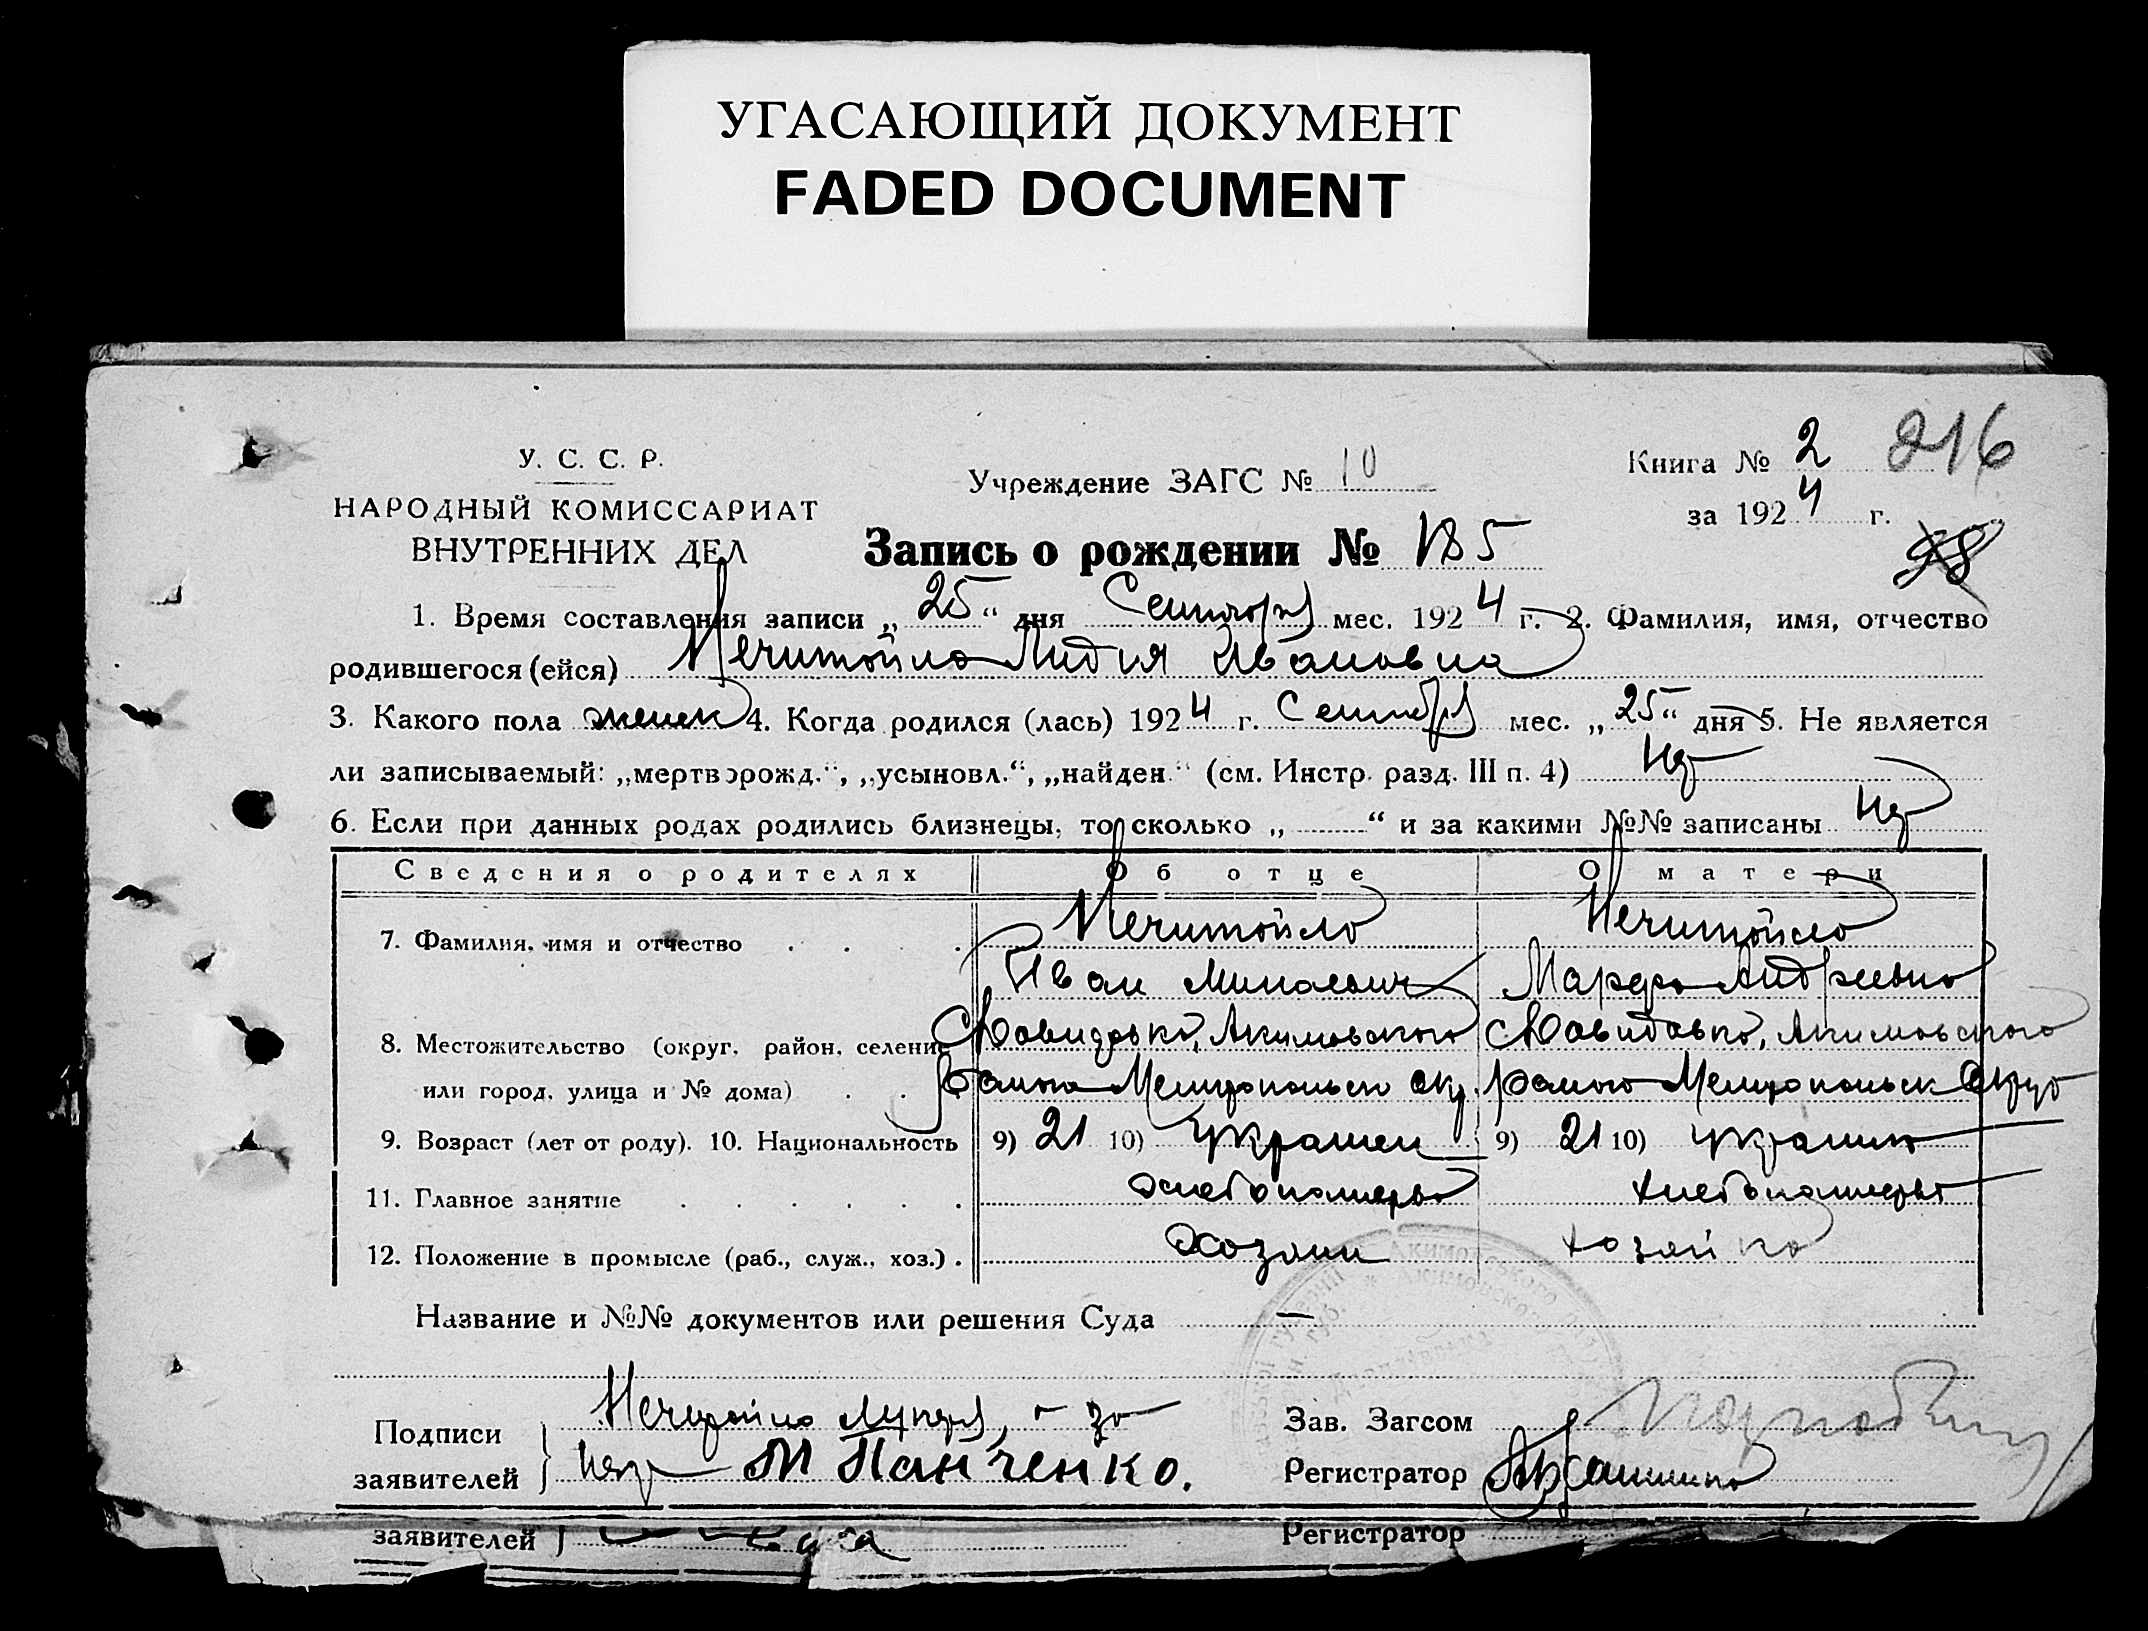 УГАСАЮЩИЙ ДОКУМЕНТ
FADED DOCUMENT
У. С. С. Р.
НАРОДНЫЙ КОМИССАРИАТ
ВНУТРЕННИХ ДЕЛ
Учреждение ЗАГС № 10
Книга № 2 216
за 1924 г.
98
Запись о рождении № 185
1. Время составления записи „25“ дня Сентября мес. 1924 г. 2. Фамилия, имя, отчество
родившегося (ейся) Нечитайло Лидия Ивановна
3. Какого пола женск 4. Когда родился (лась) 1924 г. Сентября мес. „25“ дня 5. Не является
ли записываемый: „мертворожд.“, „усыновл.“, „найден.“ (см. Инстр. разд. III п. 4) Нет
6. Если при данных родах родились близнецы, то сколько „ “ и за какими №№ записаны Нет
Сведения о родителях Об отце О матери
7. Фамилия, имя и отчество Нечитайло Нечитайло
Иван Минаевич Марфа Андреевна
8. Местожительство (округ, район, селение Давидовка, Акимовского Давидовка, Акимовского
или город, улица и № дома) района Мелитопольск окр. района Мелитопольск Округ
9. Возраст (лет от роду). 10. Национальность 9) 21 10) Украинец 9) 21 10) украинка
11. Главное занятие хлебопашество хлебопашество
12. Положение в промысле (раб., служ., хоз.) Хозяин хозяйка
Название и №№ документов или решения Суда —
Подписи
заявителей
Нечитайло
М Панченко.
Зав. Загсом
Регистратор
заявителей
Регистратор